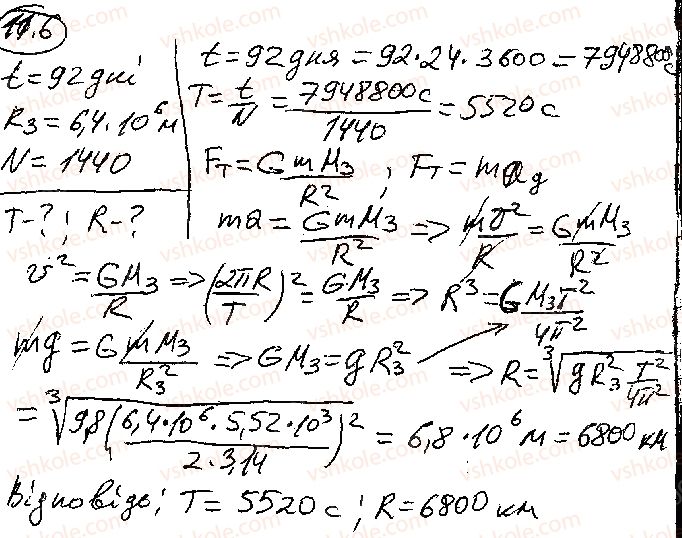 11.6
t = 92 дні
R₃ = 6,4·10⁶ м
N = 1440
T-? ; R-?
t = 92 дня = 92·24·3600 = 7948800 с
T = t/N = 7948800 с/1440 = 5520 с
F_T = G mM₃/R² ; F_T = ma_g
ma = GmM₃/R² => mv²/R = GmM₃/R²
v² = GM₃/R => (2πR/T)² = GM₃/R => R³ = G M₃T²/4π²
mg = G mM₃/R₃² => GM₃ = gR₃² => R = ∛(gR₃² T²/4π²)
= ∛(9,8(6,4·10⁶·5,52·10³/2·3,14)²) = 6,8·10⁶ м = 6800 км
Відповідь; T = 5520 с ; R = 6800 км
vshkole.com